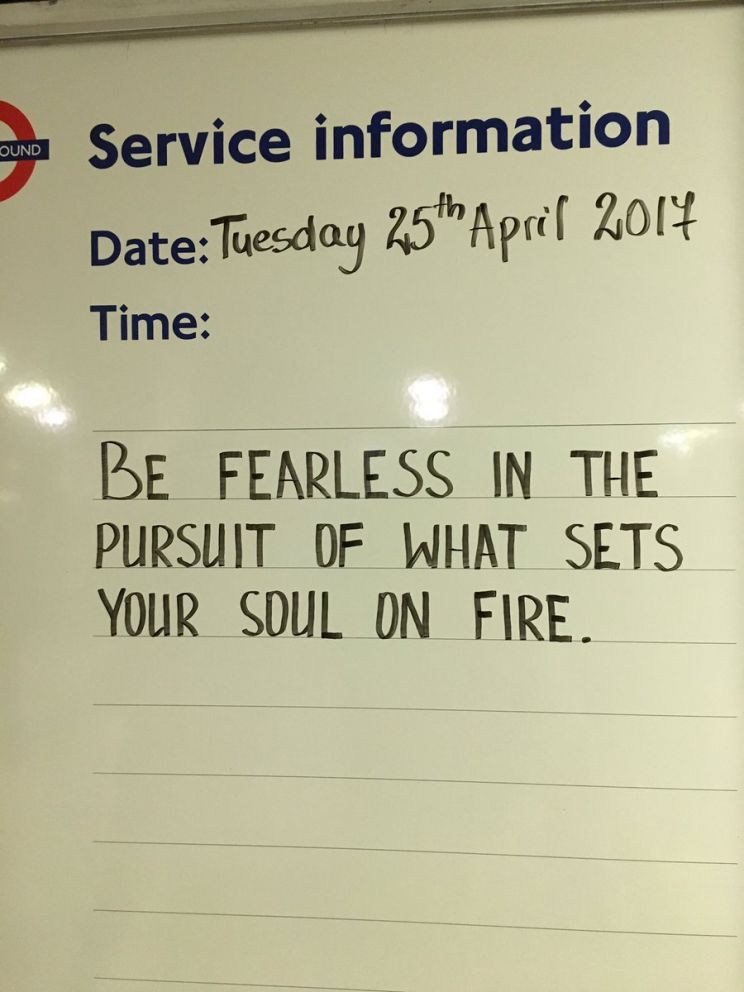 OUND
Service information
Date: Tuesday 25th April 2017
Time:
BE FEARLESS IN THE
PURSUIT OF WHAT SETS
YOUR SOUL ON FIRE.